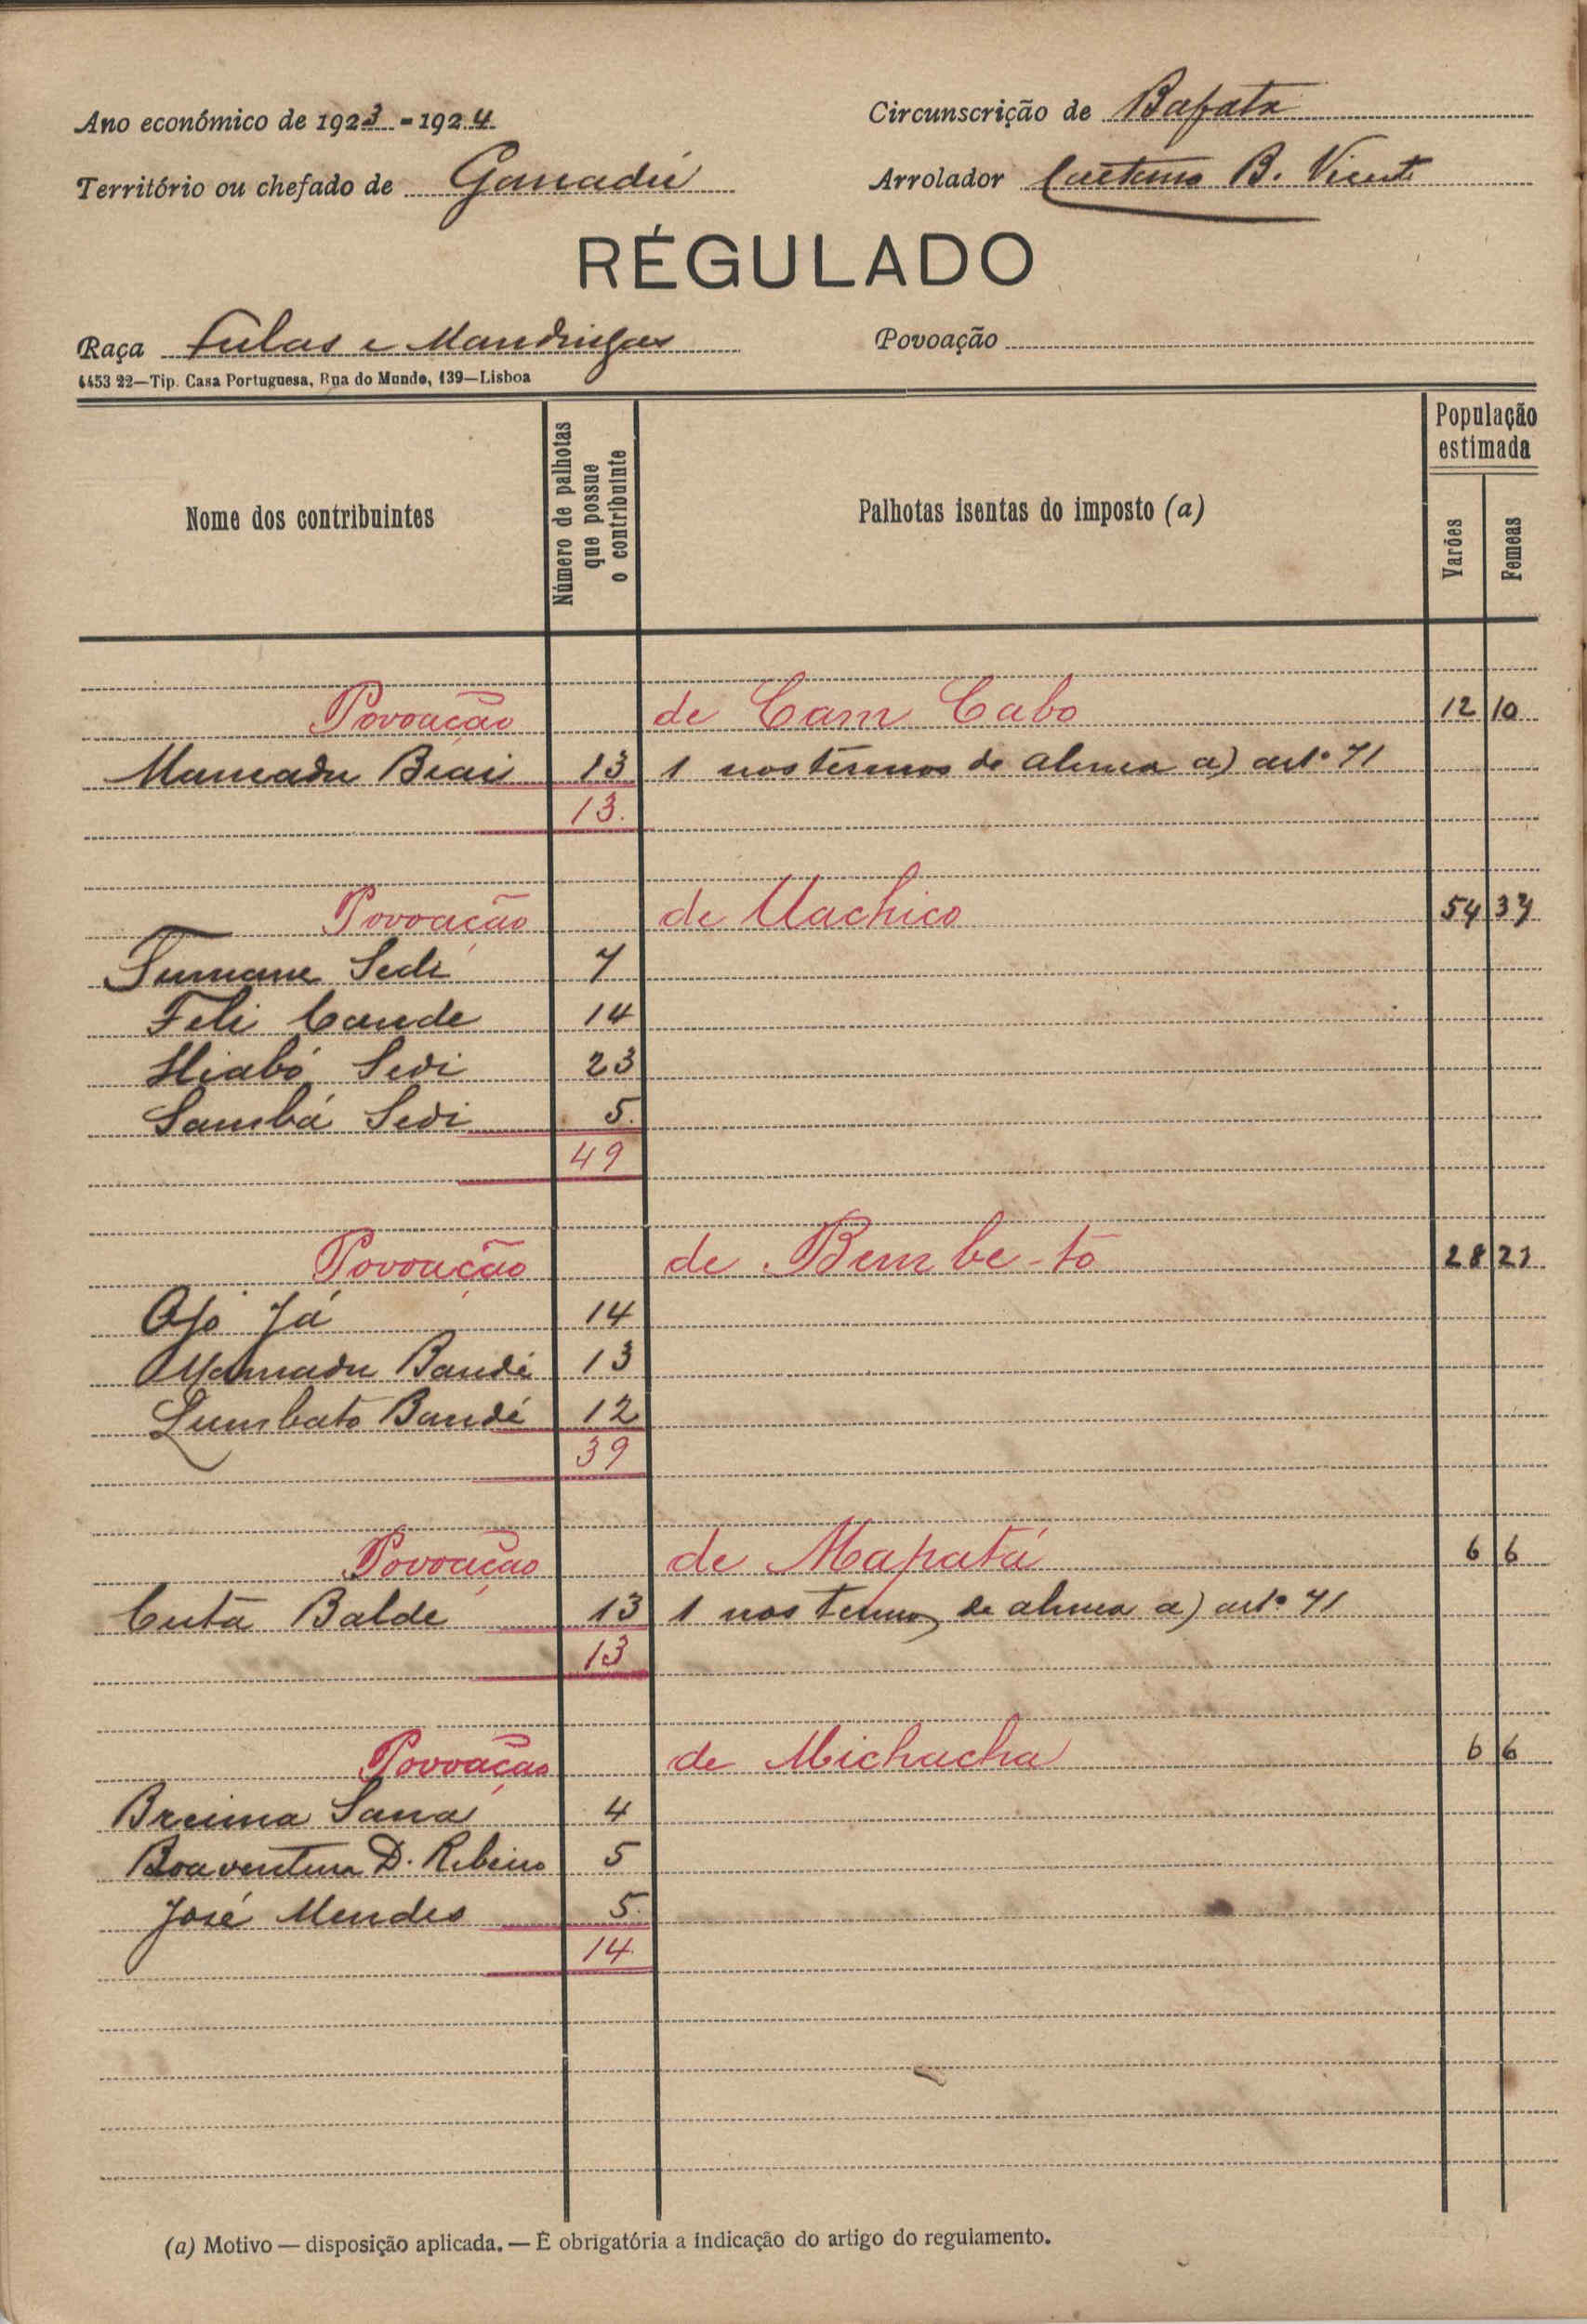 Ano económico de 1923-1924
Circunscrição de Bafata
Território ou chefado de Ganadú
Arrolador Caetano B. Vicente
RÉGULADO
Raça Fulas e Mandingas
Povoação
4453 22—Tip. Casa Portuguesa, Rua do Mundo, 139—Lisboa
Nome dos contribuintes
Número de palhotas que possue o contribuinte
Palhotas isentas do imposto (a)
População estimada
Varões
Femeas
Povoação de Cam Cabo 12 10
Mamadu Biai 13 1 nos termos de alinea a) artº 71
13.
Povoação de Uachico 54 37
Tumane Sedi 7
Feli Cande 14
Sliabó Sedi 23
Sambá Sedi 5.
49
Povoação de Bembe-tō 28 21
Já 14
Mamadu Bandé 13
Lumbato Bandé 12
39
Povoação de Mapatá 6 6
Cutá Balde 13 1 nos termos de alinea a) artº 71
13
Povoação de Michacha 6 6
Breima Sana 4
Boaventura D. Ribeiro 5
José Mendes 5.
14.
(a) Motivo — disposição aplicada. — É obrigatória a indicação do artigo do regulamento.